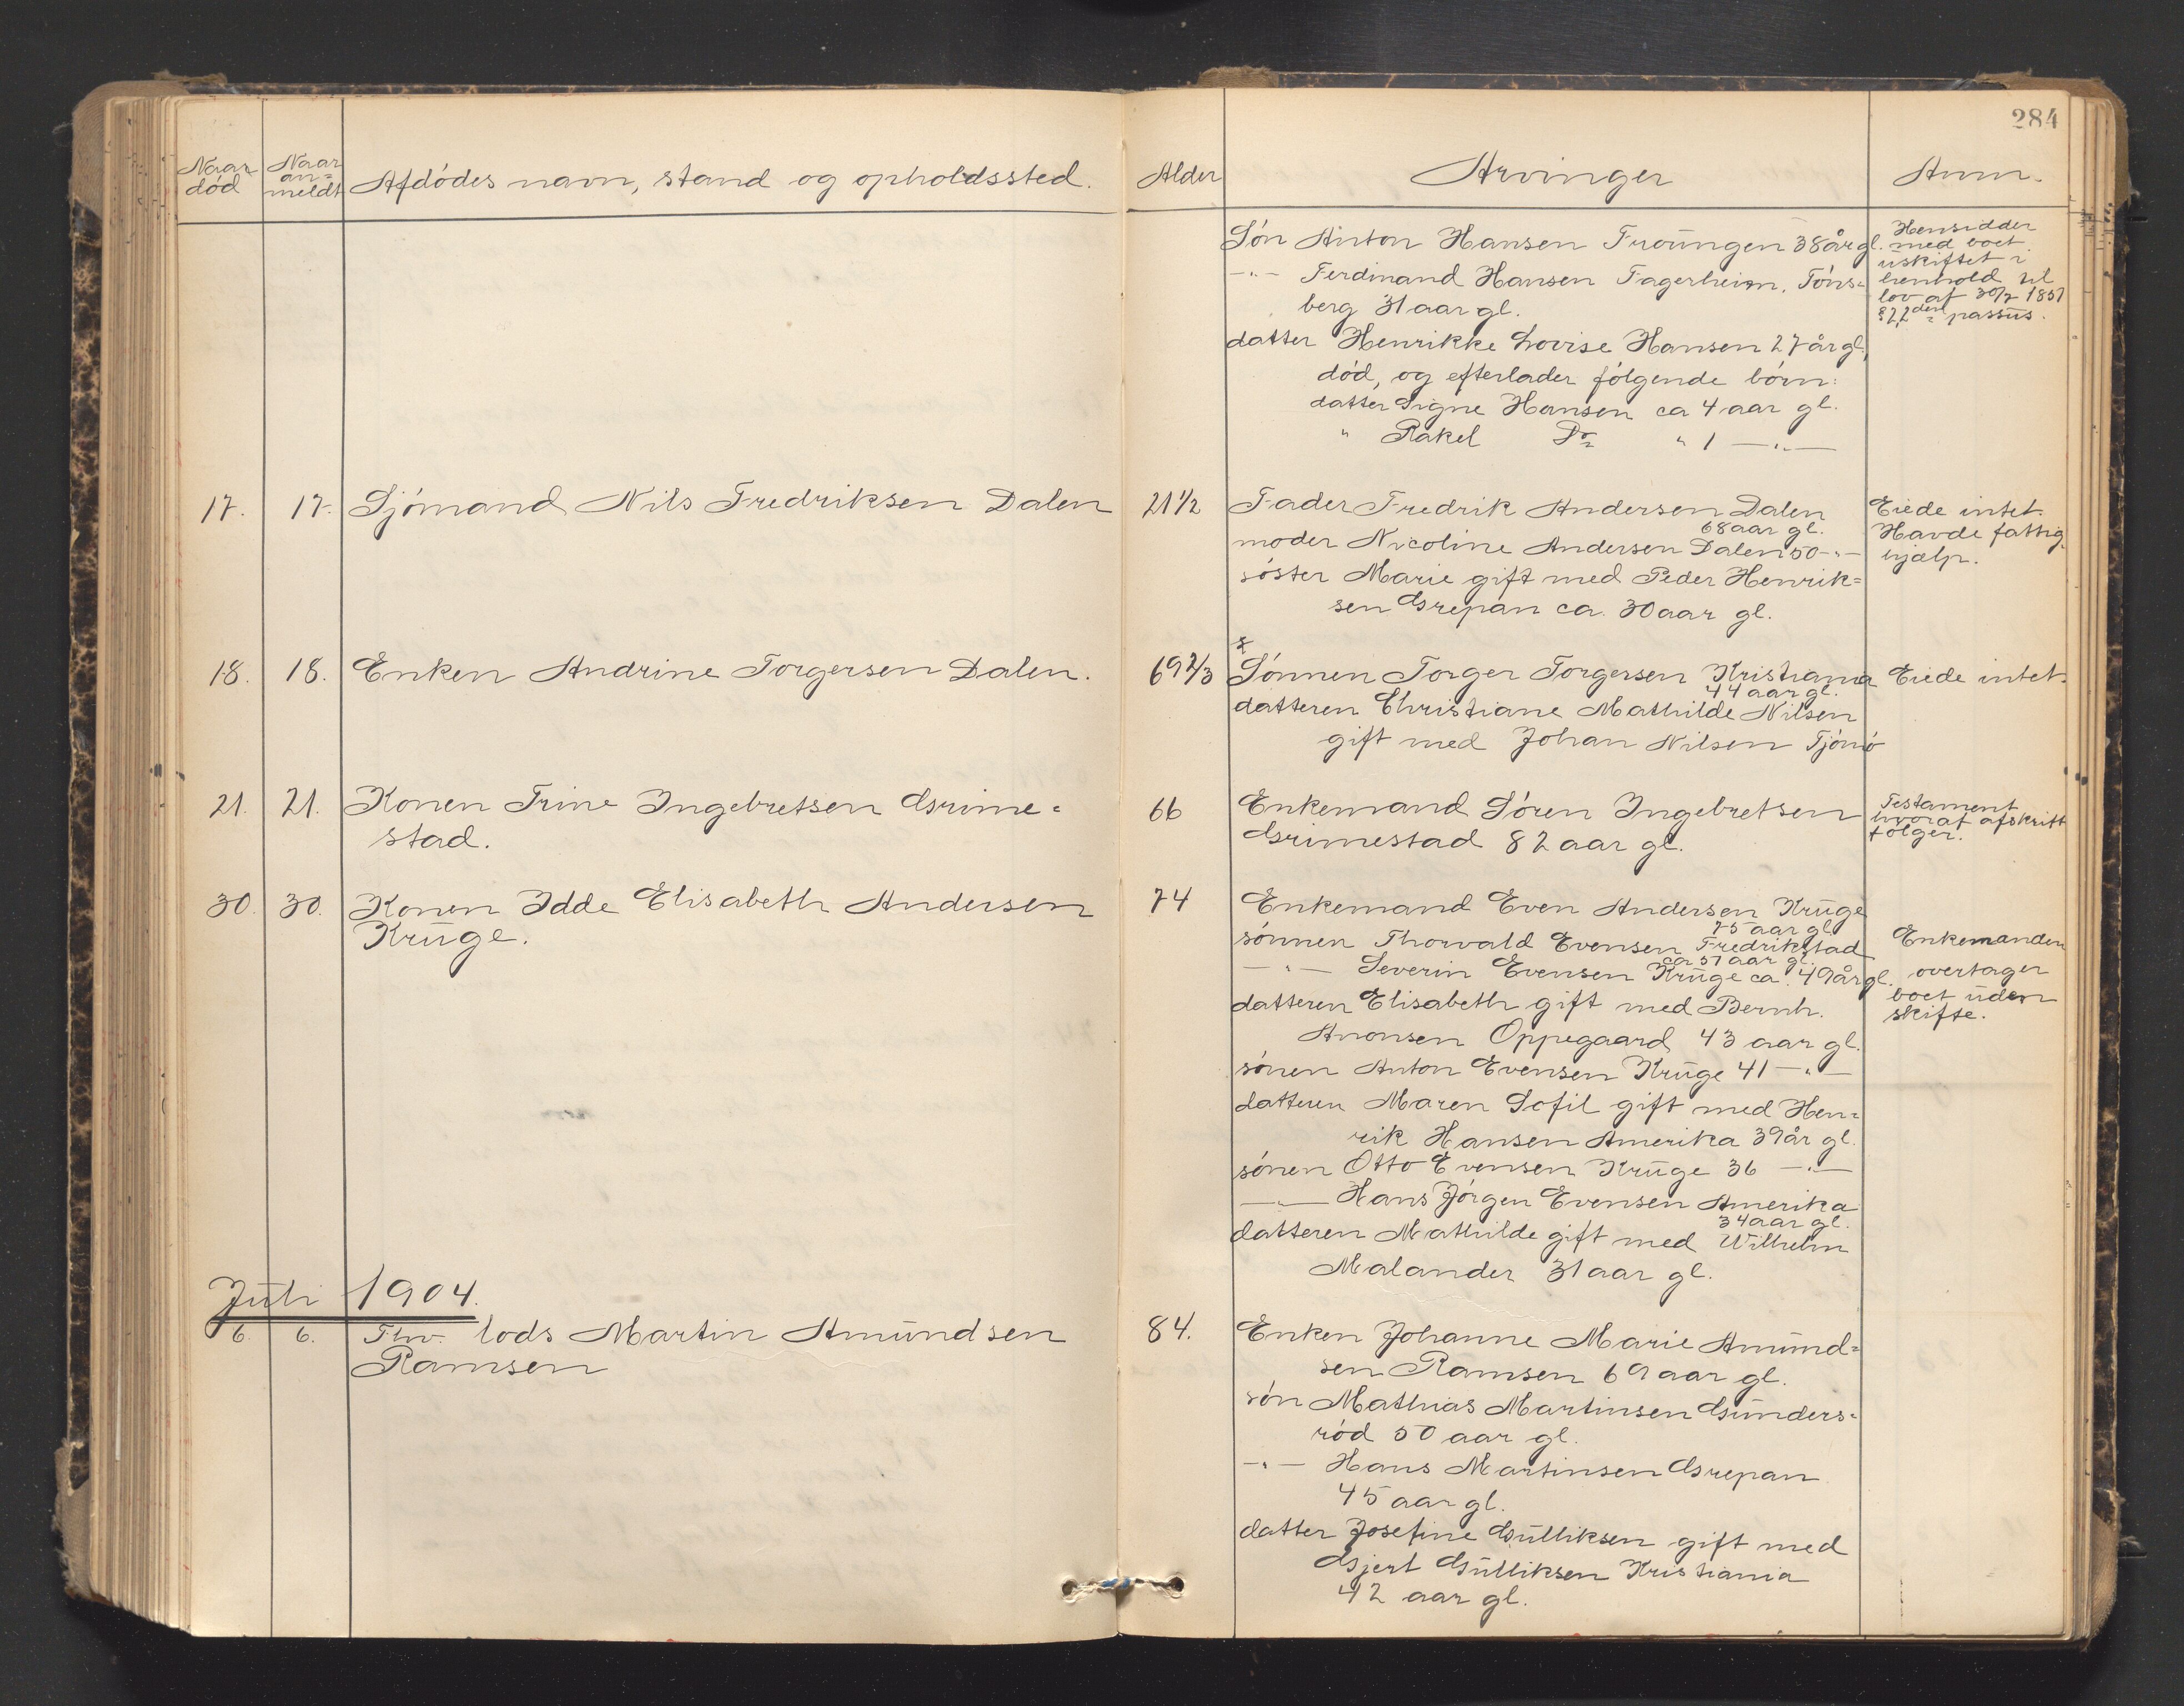 284
Naar død
Naar an-meldt
Afdødes navn, stand og opholdssted.
Alder
Arvinger
Anm.
Søn Anton Hansen Frøüngen 38 år gl.
—"— Ferdinand Hansen Fagerheim, Tøns-
berg 31 aar gl.
datter Henrikke Lovise Hansen 27 år gl,
død, og efterlader følgende børn:
datter Signe Hansen ca 4 aar gl.
" Rakel Do " 1 —"—
Hensidder
med boet
üskiftet i
henhold til
lov af 30/7 1851
§ 2, 2den passüs.
17. 17. Sjømand Nils Fredriksen Dalen
21 1/2
Fader Fredrik Andersen Dalen
68 aar gl.
moder Nicoline Andersen Dalen 50 —"—
søster Marie gift med Peder Henrik-
sen Grepan ca. 30 aar gl.
Eiede intet.
Havde fattig
hjælp.
18. 18. Enken Andrine Torgersen Dalen.
69 2/3
Sønnen Torger Torgersen Kristiania
44 aar gl.
datteren Christiane Mathilde Nilsen
gift med Johan Nilsen Tjømø
Eiede intet.
21. 21. Konen Trine Ingebretsen Grime-
stad.
66
Enkemand Søren Ingebretsen
Grimestad 82 aar gl.
Testament
hvoraf afskrift
følger.
30. 30. Konen Idde Elisabeth Andersen
Krüge.
74
Enkemand Even Andersen Krüge
75 aar gl
sønnen Thorvald Evensen Fredrikstad
ca 51 aar gl.
—"— Severin Evensen Krüge ca. 49 år gl.
datteren Elisabeth gift med Bernh.
Anonsen Oppegaard 43 aar gl.
sønen Anton Evensen Krüge 41 —"—
datteren Maren Sofil gift med Hen-
rik Hansen Amerika 39 år gl.
sønen Otto Evensen Krüge 36 —"—
—"— Hans Jørgen Evensen Amerika
34 aar gl.
datteren Mathilde gift med Wilhelm
Malander 31 aar gl.
Enkemanden
overtager
boet üden
skifte.
Jüli 1904.
6. 6. Fhv. lods Martin Amündsen
Ramsen
84.
Enken Johanne Marie Amünd-
sen Ramsen 69 aar gl.
søn Mathias Martinsen Günders-
rød 50 aar gl.
—"— Hans Martinsen Grepan
45 aar gl.
datter Josefine Gülliksen gift med
Gjert Gülliksen Kristiania
42 aar gl.